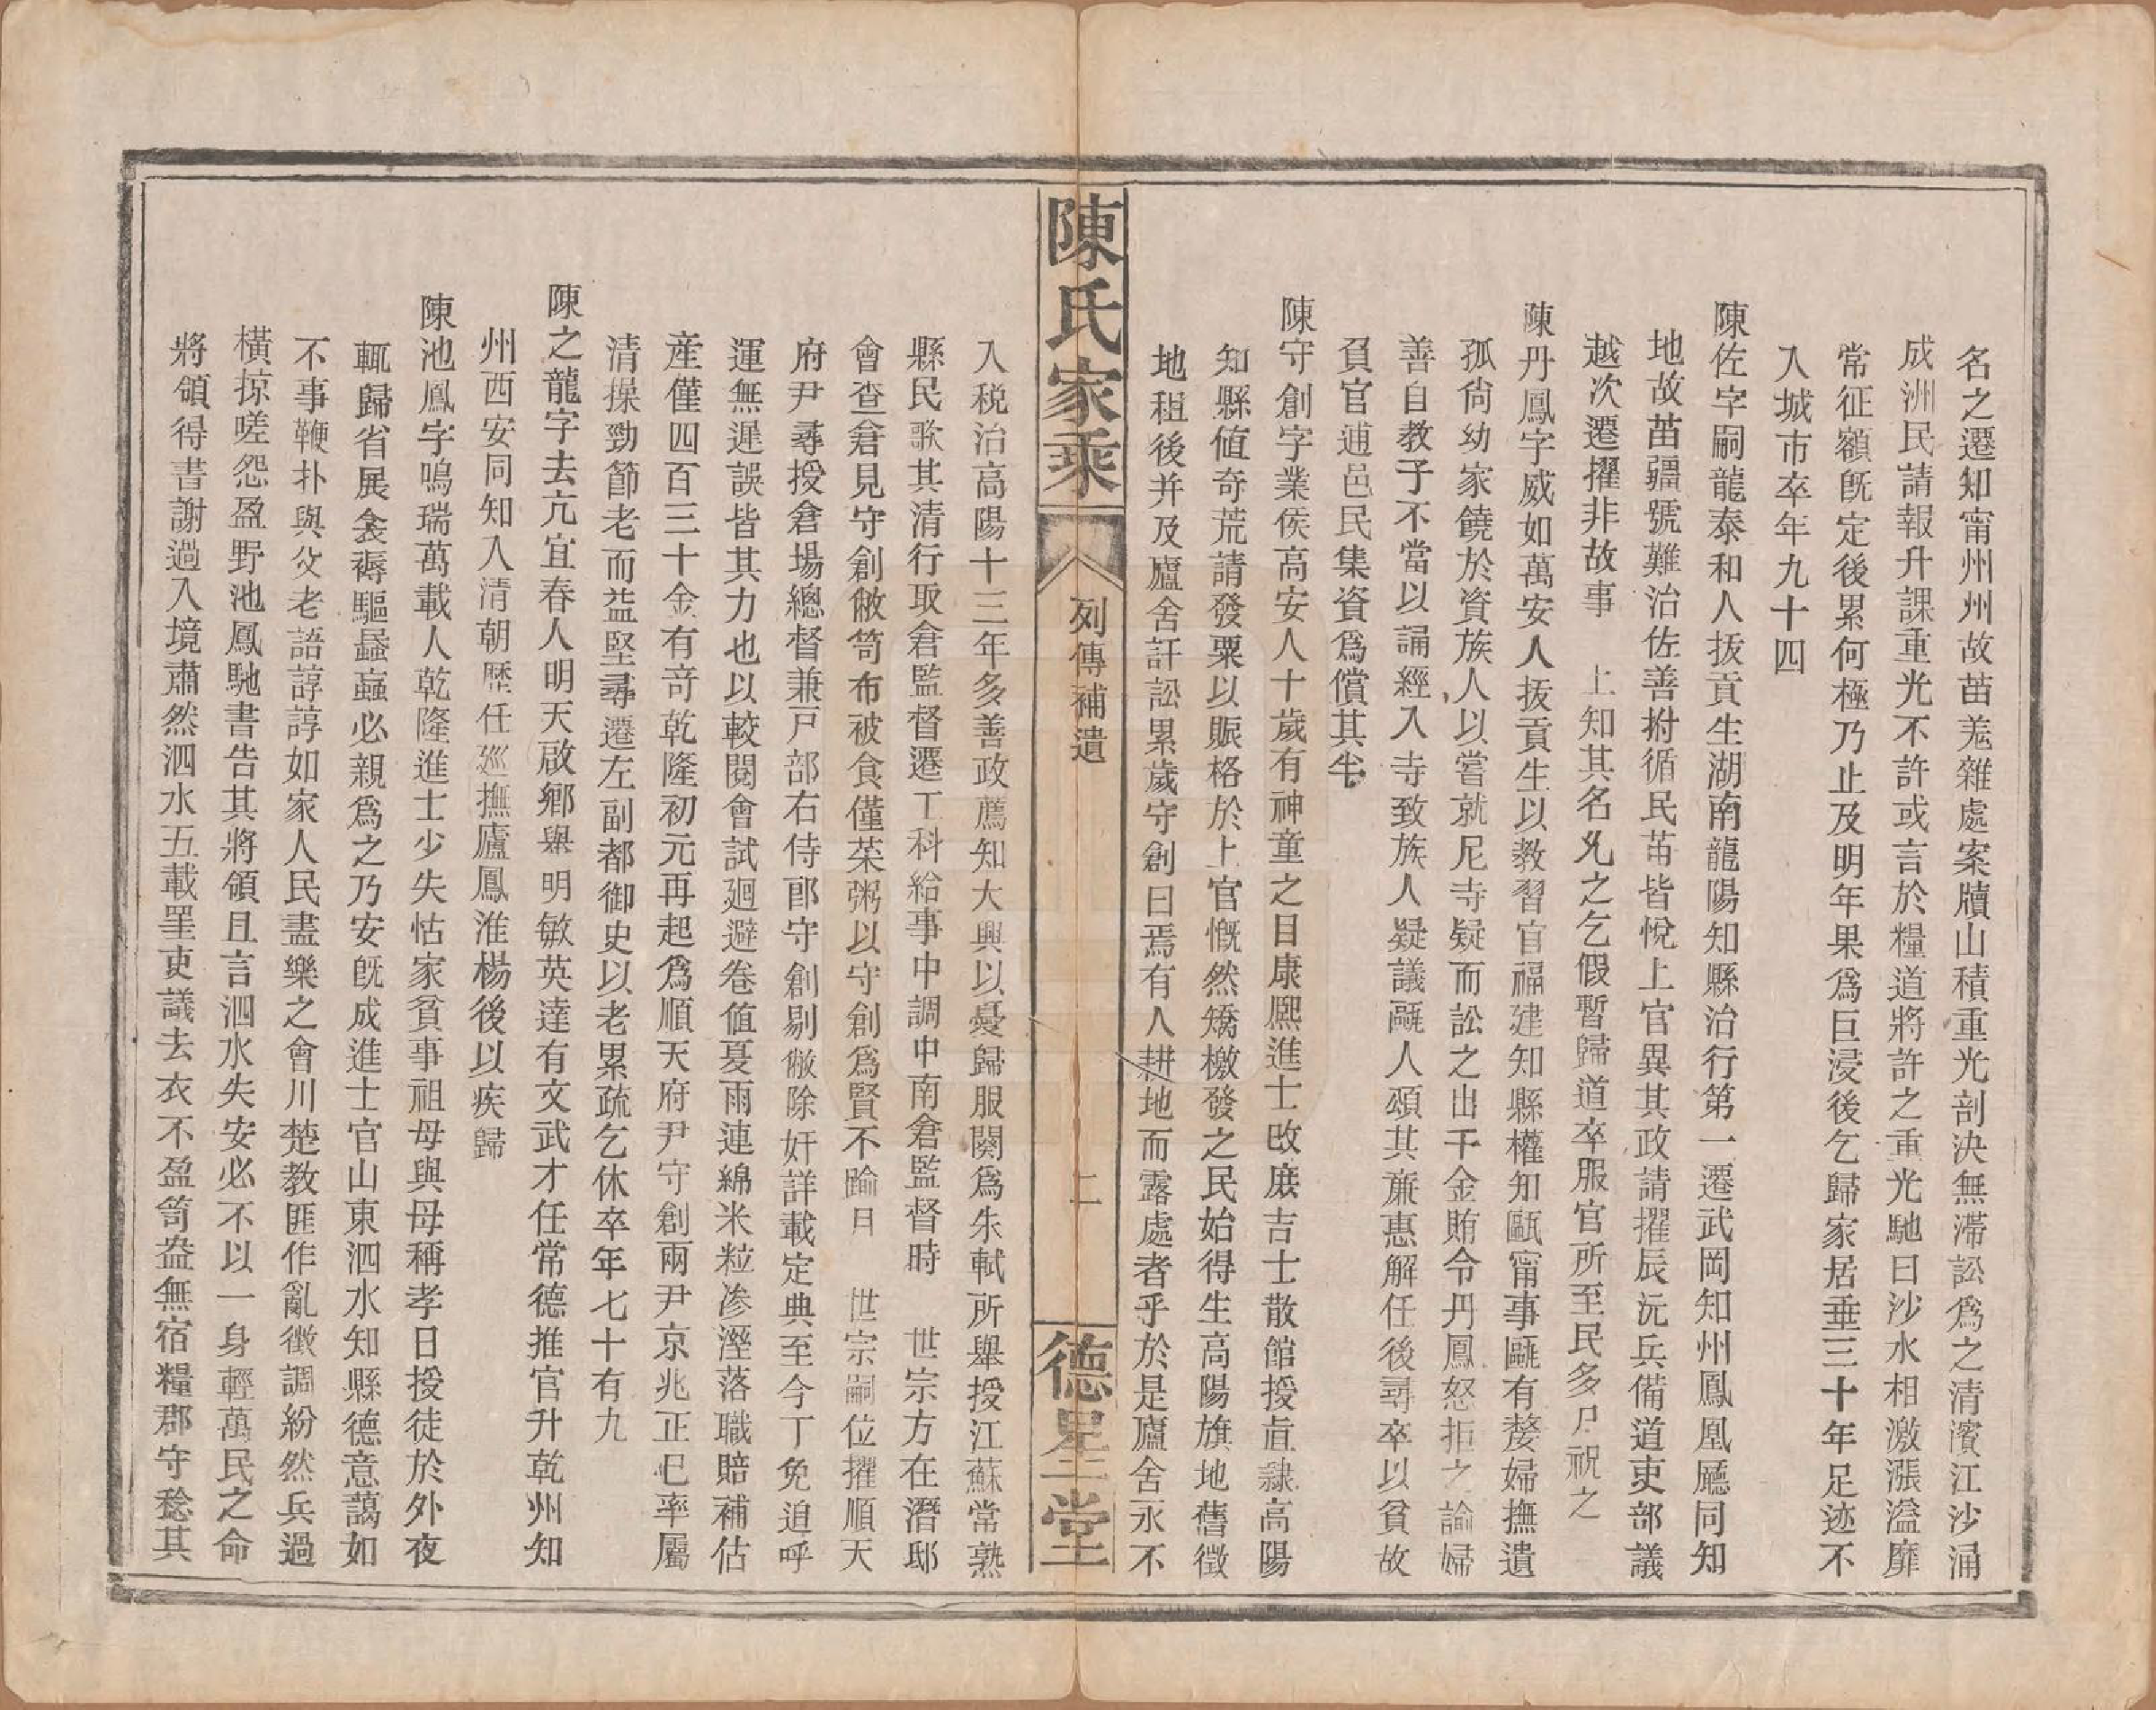 名之遷知甯州州故苗羗雜處案牘山積重光剖決無滯訟爲之清濱江沙涌
成洲民請報升課重光不許或言於糧道將許之重光馳曰沙水相激漲溢靡
常征額旣定後累何極乃止及明年果爲巨浸後乞歸家居垂三十年足迹不
入城市卒年九十四
陳佐字嗣龍泰和人拔貢生湖南龍陽知縣治行第一遷武岡知州鳳凰廳同知
地故苗疆號難治佐善拊循民苗皆悅上官異其政請擢辰沅兵備道吏部議
越次遷擢非故事　上知其名允之乞假暫歸道卒服官所至民多尸祝之
陳丹鳳字威如萬安人拔貢生以教習官福建知縣權知甌甯事甌有嫠婦撫遺
孤尙幼家饒於資族人以嘗就尼寺疑而訟之出千金賄令丹鳳怒拒之諭婦
善自教子不當以誦經入寺致族人疑議甌人頌其廉惠解任後尋卒以貧故
負官逋邑民集資爲償其半
陳守創字業侯高安人十歲有神童之目康熙進士改庶吉士散館授直隸高陽
知縣値奇荒請發粟以賑格於上官慨然矯檄發之民始得生高陽旗地舊徵
地租後并及廬舍訐訟累歲守創曰焉有人耕地而露處者乎於是廬舍永不
陳氏家乘
列傳補遺
二
德星堂
入税治高陽十三年多善政薦知大興以憂歸服闋爲朱軾所舉授江蘇常熟
縣民歌其清行取倉監督遷工科給事中調中南倉監督時　世宗方在潛邸
會查倉見守創敝笥布被食僅菜粥以守創爲賢不踰日　世宗嗣位擢順天
府尹尋授倉場總督兼戸部右侍郎守創剔檄除奸詳載定典至今丁免追呼
運無遲誤皆其力也以較閱會試廻避卷値夏雨連綿米粒滲溼落職賠補估
産僅四百三十金有奇乾隆初元再起爲順天府尹守創兩尹京兆正巳率屬
清操勁節老而益堅尋遷左副都御史以老累疏乞休卒年七十有九
陳之龍字去亢宜春人明天啟鄕舉明敏英達有文武才任常德推官升乾州知
州西安同知入清朝歷任巡撫廬鳳淮楊後以疾歸
陳池鳳字鳴瑞萬載人乾隆進士少失怙家貧事祖母與母稱孝日授徒於外夜
輒歸省展衾褥驅蟁蝱必親爲之乃安旣成進士官山東泗水知縣德意藹如
不事鞭扑與父老語諄諄如家人民盡樂之會川楚教匪作亂徵調紛然兵過
橫掠嗟怨盈野池鳳馳書告其將領且言泗水失安必不以一身輕萬民之命
將領得書謝過入境肅然泗水五載罣吏議去衣不盈笥盎無宿糧郡守稔其